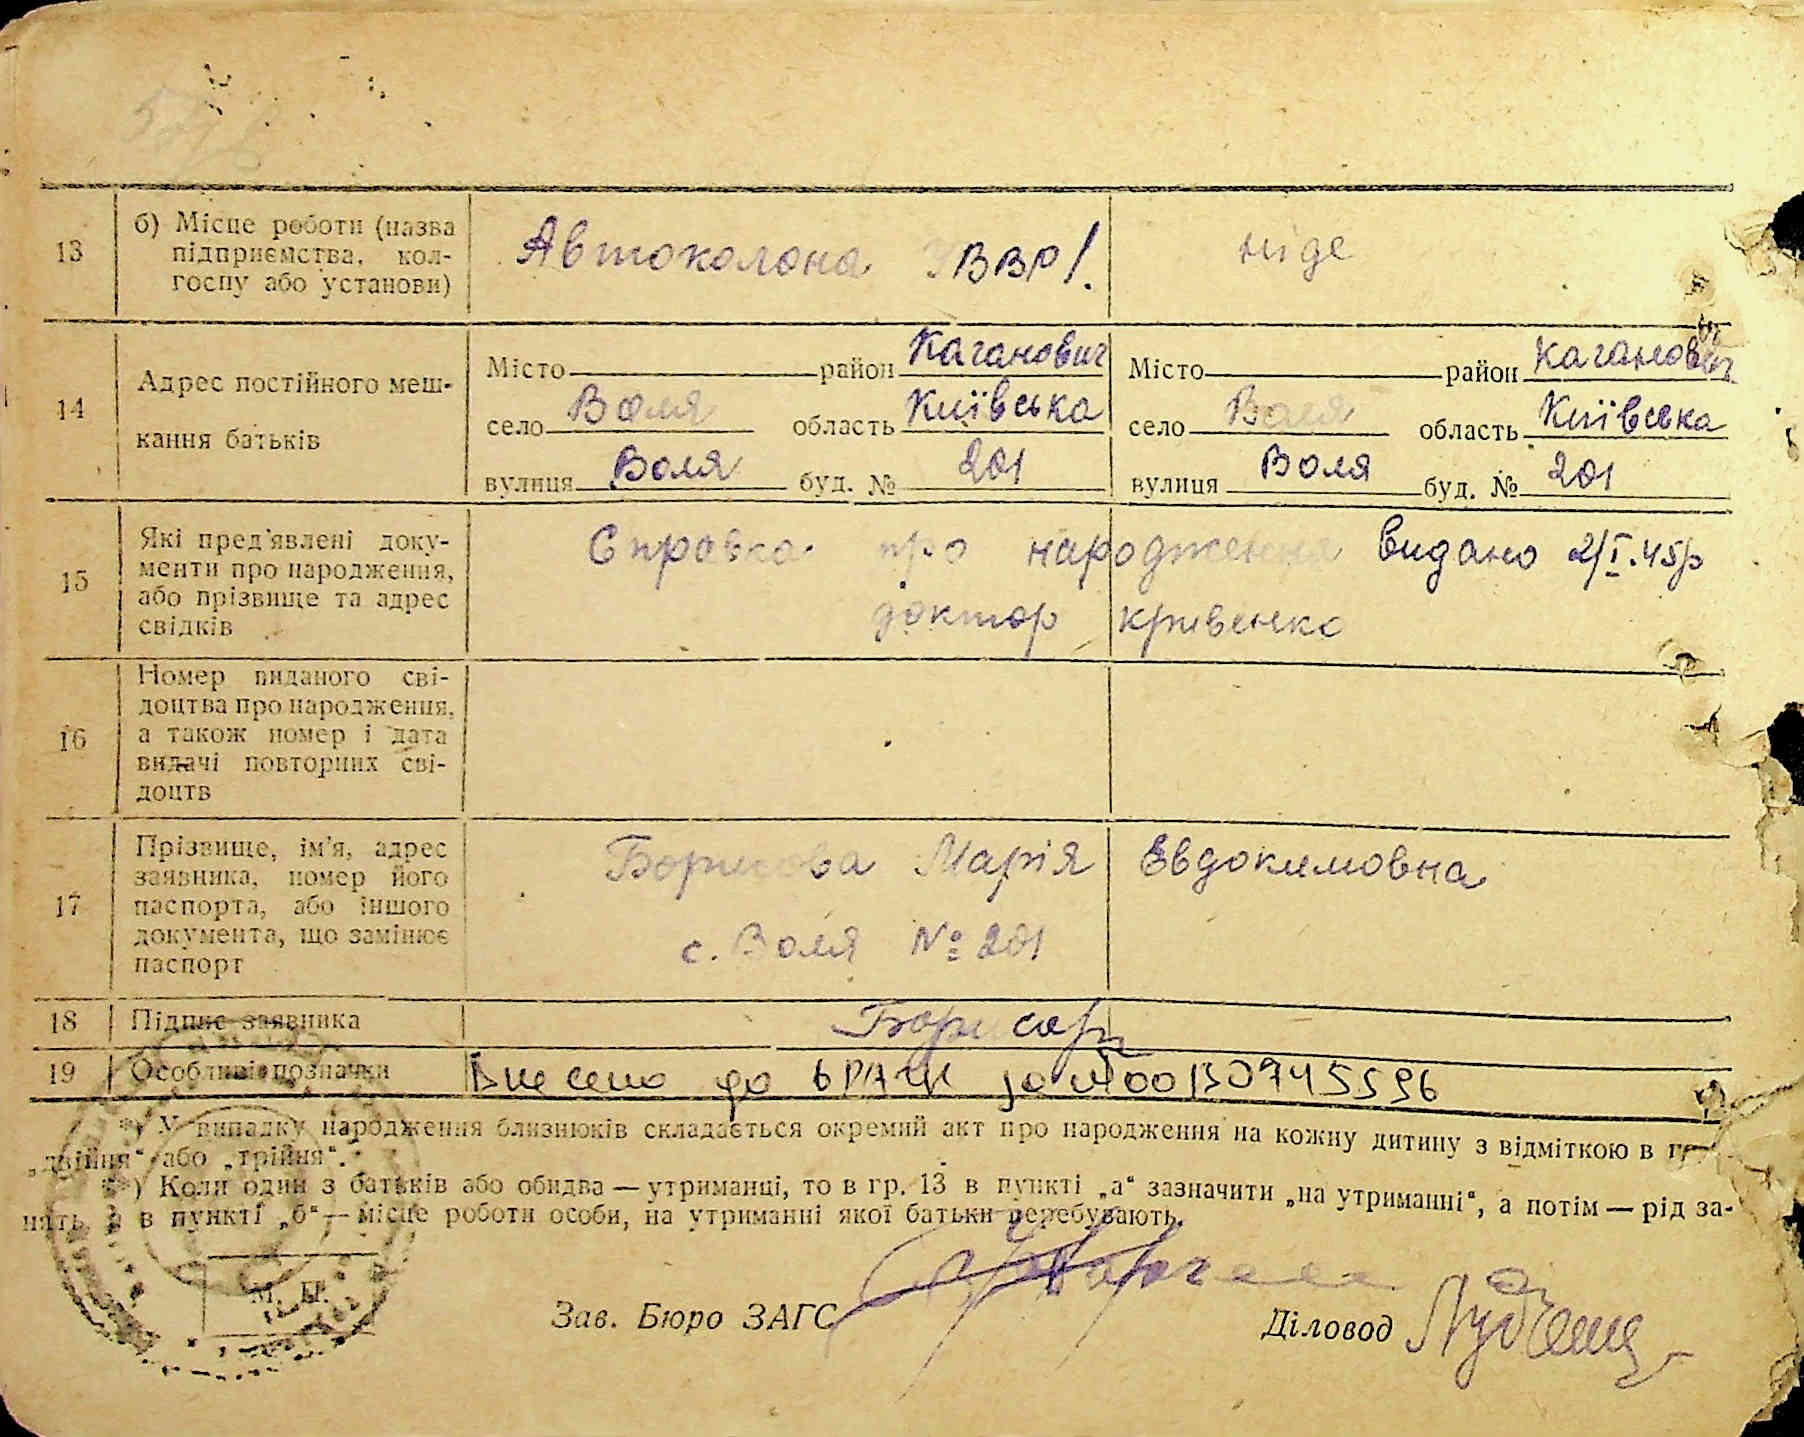 13 б) Місце роботи (назва
підприємства, кол-
госпу або установи)
Автоколона УВВР!. ніде
14 Адрес постійного меш-
кання батьків
Місто район Каганович Місто район Каганович
село Воля область Київська село Воля область Київська
вулиця Воля буд. № 201 вулиця Воля буд. № 201
15 Які пред'явлені доку-
менти про народження,
або прізвище та адрес
свідків
Справка про народження видано 2/I.45р
доктор Кривенко
16 Номер виданого сві-
доцтва про народження,
а також номер і дата
видачі повторних сві-
доцтв
17 Прізвище, ім'я, адрес
заявника, номер його
паспорта, або іншого
документа, що замінює
паспорт
Борисова Марія Евдокимовна
с. Воля № 201
18 Підпис заявника
19 Особливі позначки Внесено до ДРАЦС за № 00130745596
*) У випадку народження близнюків складається окремий акт про народження на кожну дитину з відміткою в гр.
„двійня“ або „трійня“.
**) Коли один з батьків або обидва — утриманці, то в гр. 13 в пункті „а“ зазначити „на утриманні“, а потім — рід за-
нять, а в пункті „б“ — місце роботи особи, на утриманні якої батьки перебувають.
М. П.
Зав. Бюро ЗАГС Діловод